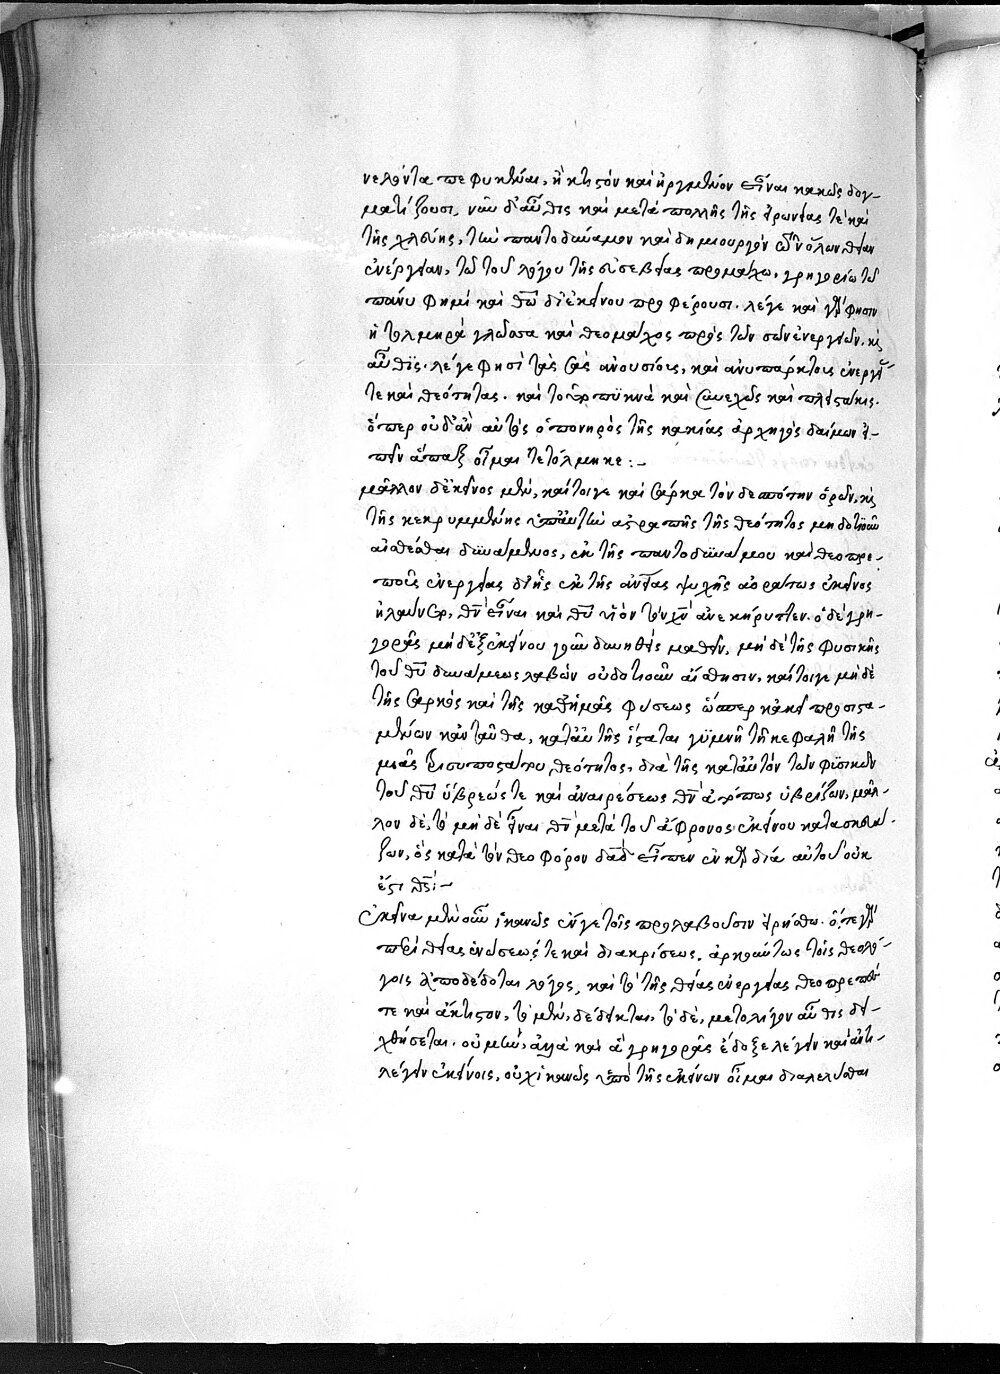 νελόντα πεφυκέναι, ἢ κτιστὸν καὶ ἠργμένον εἶναι κακῶς δογ-
ματίζουσι, νῦν δ' αὖθις καὶ μετὰ πολλῆς τῆς εἰρωνείας τὲ καὶ
τῆς χλεύης, τὴν παντοδύναμον καὶ δημιουργὸν τῶν ὅλων θείαν
ἐνέργειαν, τῶ τοῦ λόγου τῆς εὐσεβείας προμάχω, γρηγορίω τῶ
πάνυ φημὶ καὶ θῶ δι' ἐκείνου προφέρουσι. λέγε καὶ γάρ φησιν
ἡ τολμηρὰ γλῶσσα καὶ θεομάχος πρὸς τῶν σῶν ἐνεργειῶν. καὶ
αὖθις. λέγε φησὶ τὰς σὰς ἀνουσίους, καὶ ἀνυπάρκτους ἐνεργείας
τε καὶ θεότητας. καὶ τοῦτο πυκνὰ καὶ συνεχῶς καὶ πλειστάκις.
ὅπερ οὐδ' ἂν αὐτὸς ὁ πονηρὸς τῆς κακίας ἀρχηγὸς δαίμων εἰ-
πεῖν ἅπαξ οἶμαι τετόλμηκε:-
μᾶλλον δ' ἐκεῖνος μὲν, καίτοιγε καὶ σάρκα τὸν δεσπότην ὁρῶν, καὶ
τῆς κεκρυμμένης ὑπ' αὐτὴν ἀστραπῆς τῆς θεότητος μηδοτιοῦν
αἰσθέσθαι δυνάμενος, ἐκ τῆς παντοδυνάμου καὶ θεοπρε-
ποῦς ἐνεργείας δι' ἧς ἐκ τῆς ψυχῆς ἀοράτως ἐκεῖνος
ἠλαύνετο, θν εἶναι καὶ θῦ υἱὸν τὸν χν ἀνεκήρυττεν. ὁ δὲ γρη-
γορᾶς μηδ' ἐξ ἐκείνου γοῦν δυνηθεὶς μαθεῖν, μηδὲ τῆς φυσικῆς
τοῦ θῦ δυνάμεως λαβὼν οὐδοτιοῦν αἴσθησιν, καίτοιγε μηδὲ
τῆς σαρκὸς καὶ τῆς καθ' ἡμᾶς φύσεως ὥσπερ κἀκεῖ προϊστα-
μένων κἀνταῦθα, κατ' αὐτῆς ἵσταται γυμνῆ τῆ κεφαλῆ τῆς
μιᾶς τρισυποστάτου θεότητος, διὰ τῆς κατ' αὐτὸν τῶν φυσικῶν
τοῦ θῦ ὕβρεώς τε καὶ ἀναιρέσεως θν ἀθέως ὑβρίζων, μᾶλ-
λον δὲ, τὸ μηδ' εἶναι θν μετὰ τοῦ ἄφρονος ἐκείνου κατασκευά-
ζων, ὃς κατὰ τὸν θεοφόρον δαδ εἶπεν ἐν καρδία αὐτοῦ οὐκ
ἔστι θς:-
Ἐκεῖνα μὲν οὖν ἱκανῶς ἔν γε τοῖς προλαβοῦσιν εἰρήσθω. ὅ,τε γὰρ
περὶ θείας ἑνώσεώς τε καὶ διακρίσεως, ἀρκούντως τοῖς θεολό-
γοις ἀποδέδοται λόγος, καὶ τὸ τῆς θείας ἐνεργείας θεοπρεπές
τε καὶ ἄκτιστον, τὸ μὲν, δέδεικται, τὸ δὲ, μετολίγον αὖθις δει-
χθήσεται. οὐ μὴν, ἀλλὰ καὶ ἃ γρηγορᾶς ἔδοξε λέγειν καὶ ἀντι-
λέγειν ἐκείνοις, οὐχ ἱκανῶς ὑπὸ τῆς ἐκείνων οἶμαι διαλελύσθαι